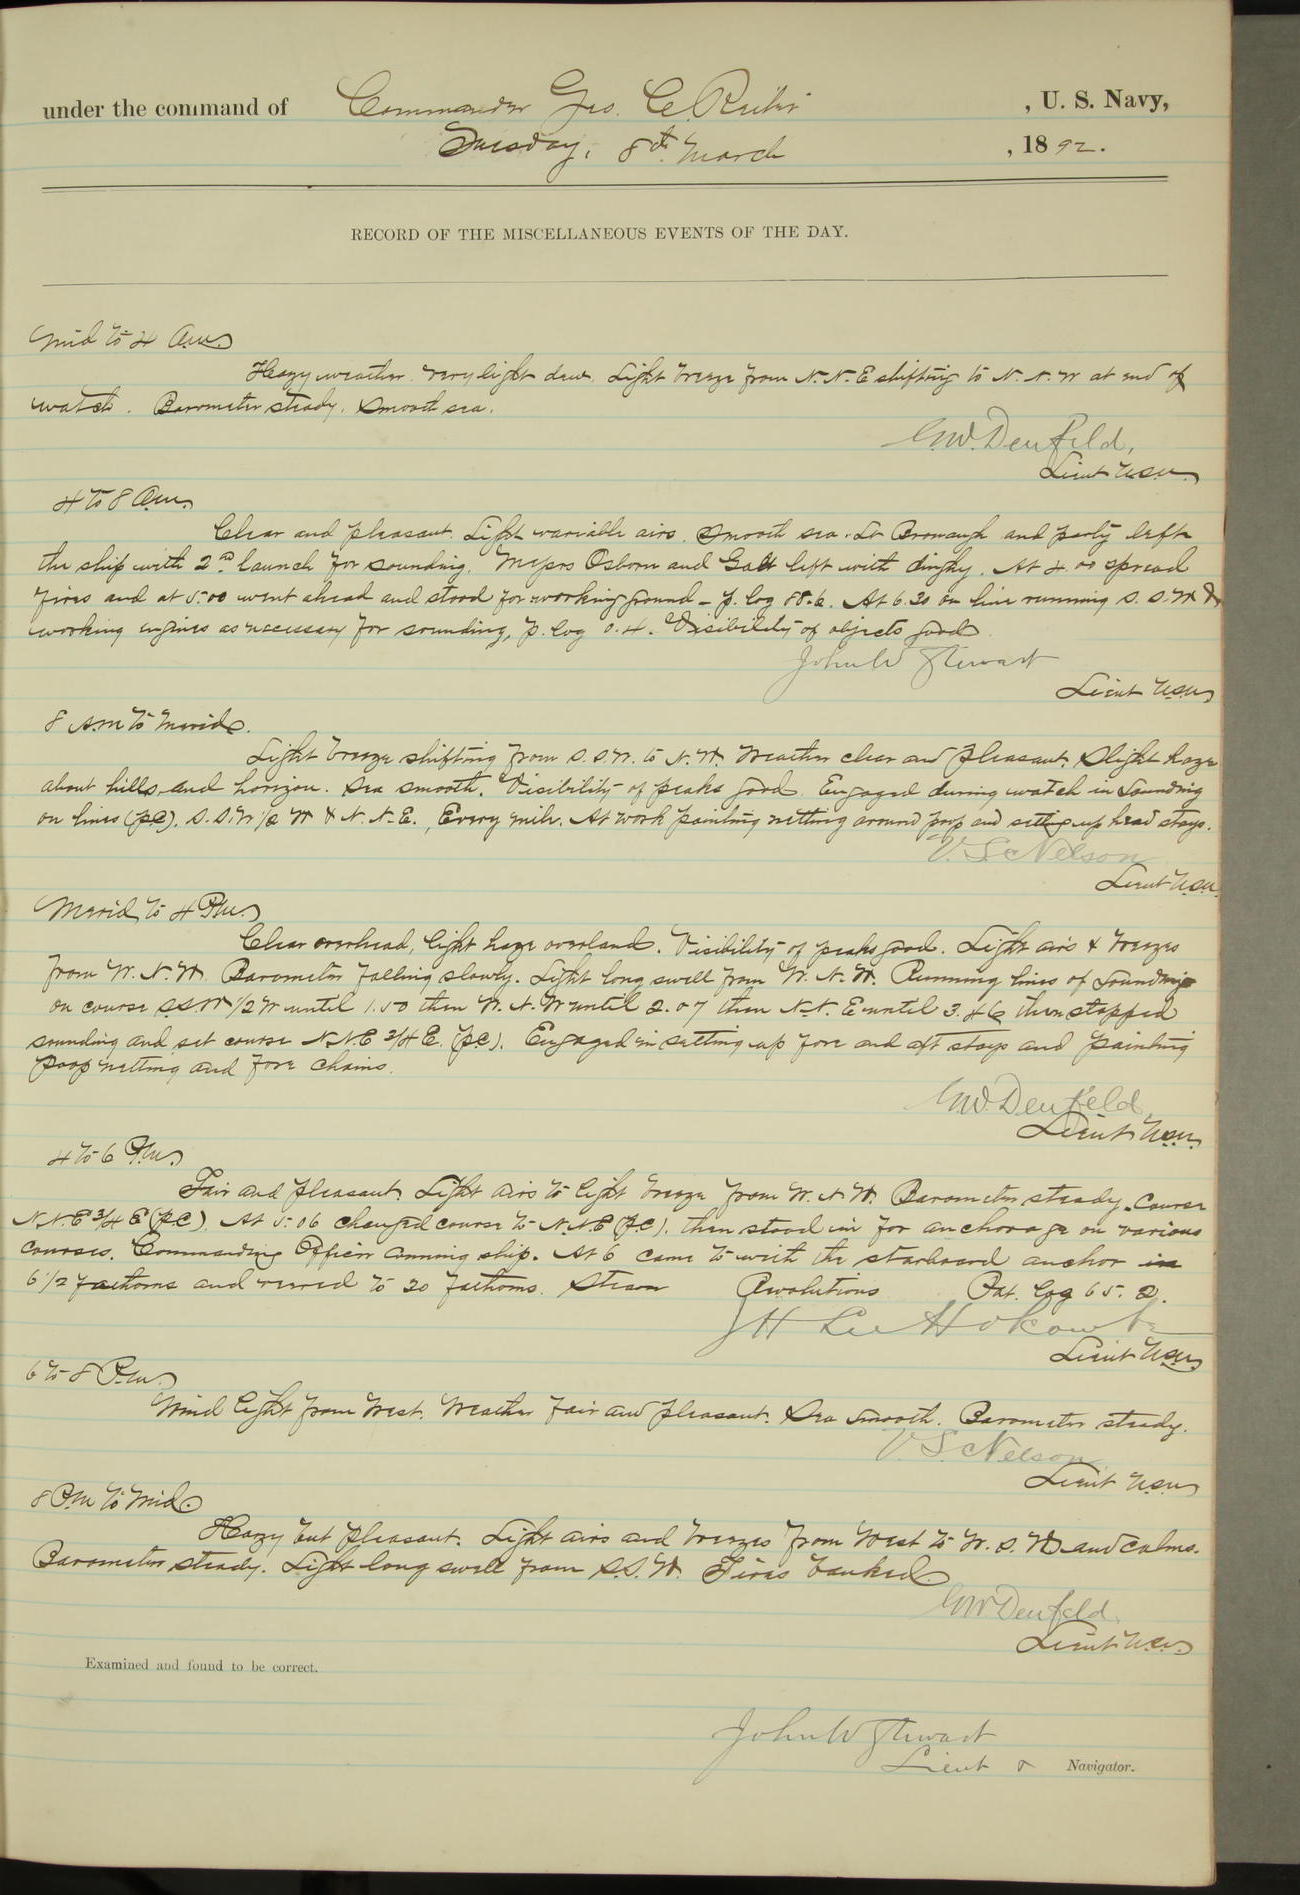 under the command of Commander Geo. C. Reiter, U. S. Navy,
Tuesday, 8th March, 1892.
RECORD OF THE MISCELLANEOUS EVENTS OF THE DAY.
Mid to 4 A.m.
Hazy weather. Very light dew. Light breeze from N.N.E shifting to N.N.W at end of
watch. Barometer steady. Smooth sea.
G.W. Denfeld,
Lieut U.S.N.
4 to 8 A.m.
Clear and pleasant. Light variable airs. Smooth sea. Lt Bronaugh and party left
the ship with 2nd launch for sounding. Messrs Osborn and Galt left with dinghy. At 4.00 spread
fires and at 5.00 went ahead and stood for working ground - p. log 88.6. At 6.30 on line running S.S.W &
working engines as necessary for sounding, p. log 0.4. Visibility of objects good
John W Stewart
Lieut U.S.N.
8 A.M to Merid.
Light breeze shifting from S.S.W. to N.W. Weather clear and pleasant. Slight haze
about hills and horizon. Sea smooth. Visibility of peaks good. Engaged during watch in Sounding
on lines (p.c). S.S.W 1/2 W & N.N.E. Every mile. At work painting netting around poop and setting up head stays.
V. S. Nelson
Lieut U.S.N.
Merid to 4 P.m.
Clear overhead, light haze overland. Visibility of peaks good. Light airs & breezes
from W.N.W. Barometer falling slowly. Light long swell from W.N.W. Running lines of Soundings
on course S.S.W 1/2 W until 1.50 then W.N.W until 2.07 then N.N.E until 3.46 then stopped
sounding and set course N.N.E 3/4 E. (p.c). Engaged in setting up fore and aft stays and painting
poop netting and fore chains.
G.W. Denfeld,
Lieut U.S.N.
4 to 6 P.m.
Fair and pleasant. Light airs to light breeze from W.N.W. Barometer steady. Course
N.N.E 3/4 E (p.c). At 5.06 changed course to N.N.E (p.c). then stood in for anchorage on various
courses. Commanding Officer conning ship. At 6 came to with the starboard anchor in
6 1/2 fathoms and veered to 20 fathoms. Steam Revolutions Pat. log 65.2.
Lieut U.S.N.
6 to 8 P.m.
Wind light from West. Weather fair and pleasant. Sea smooth. Barometer steady.
V. S. Nelson
Lieut U.S.N.
8 P.M to Mid.
Hazy but pleasant. Light airs and breezes from West to W.S.W and calms.
Barometer steady. Light long swell from S.S.W. Fires banked.
G.W. Denfeld.
Lieut U.S.N.
Examined and found to be correct.
John W Stewart
Lieut & Navigator.